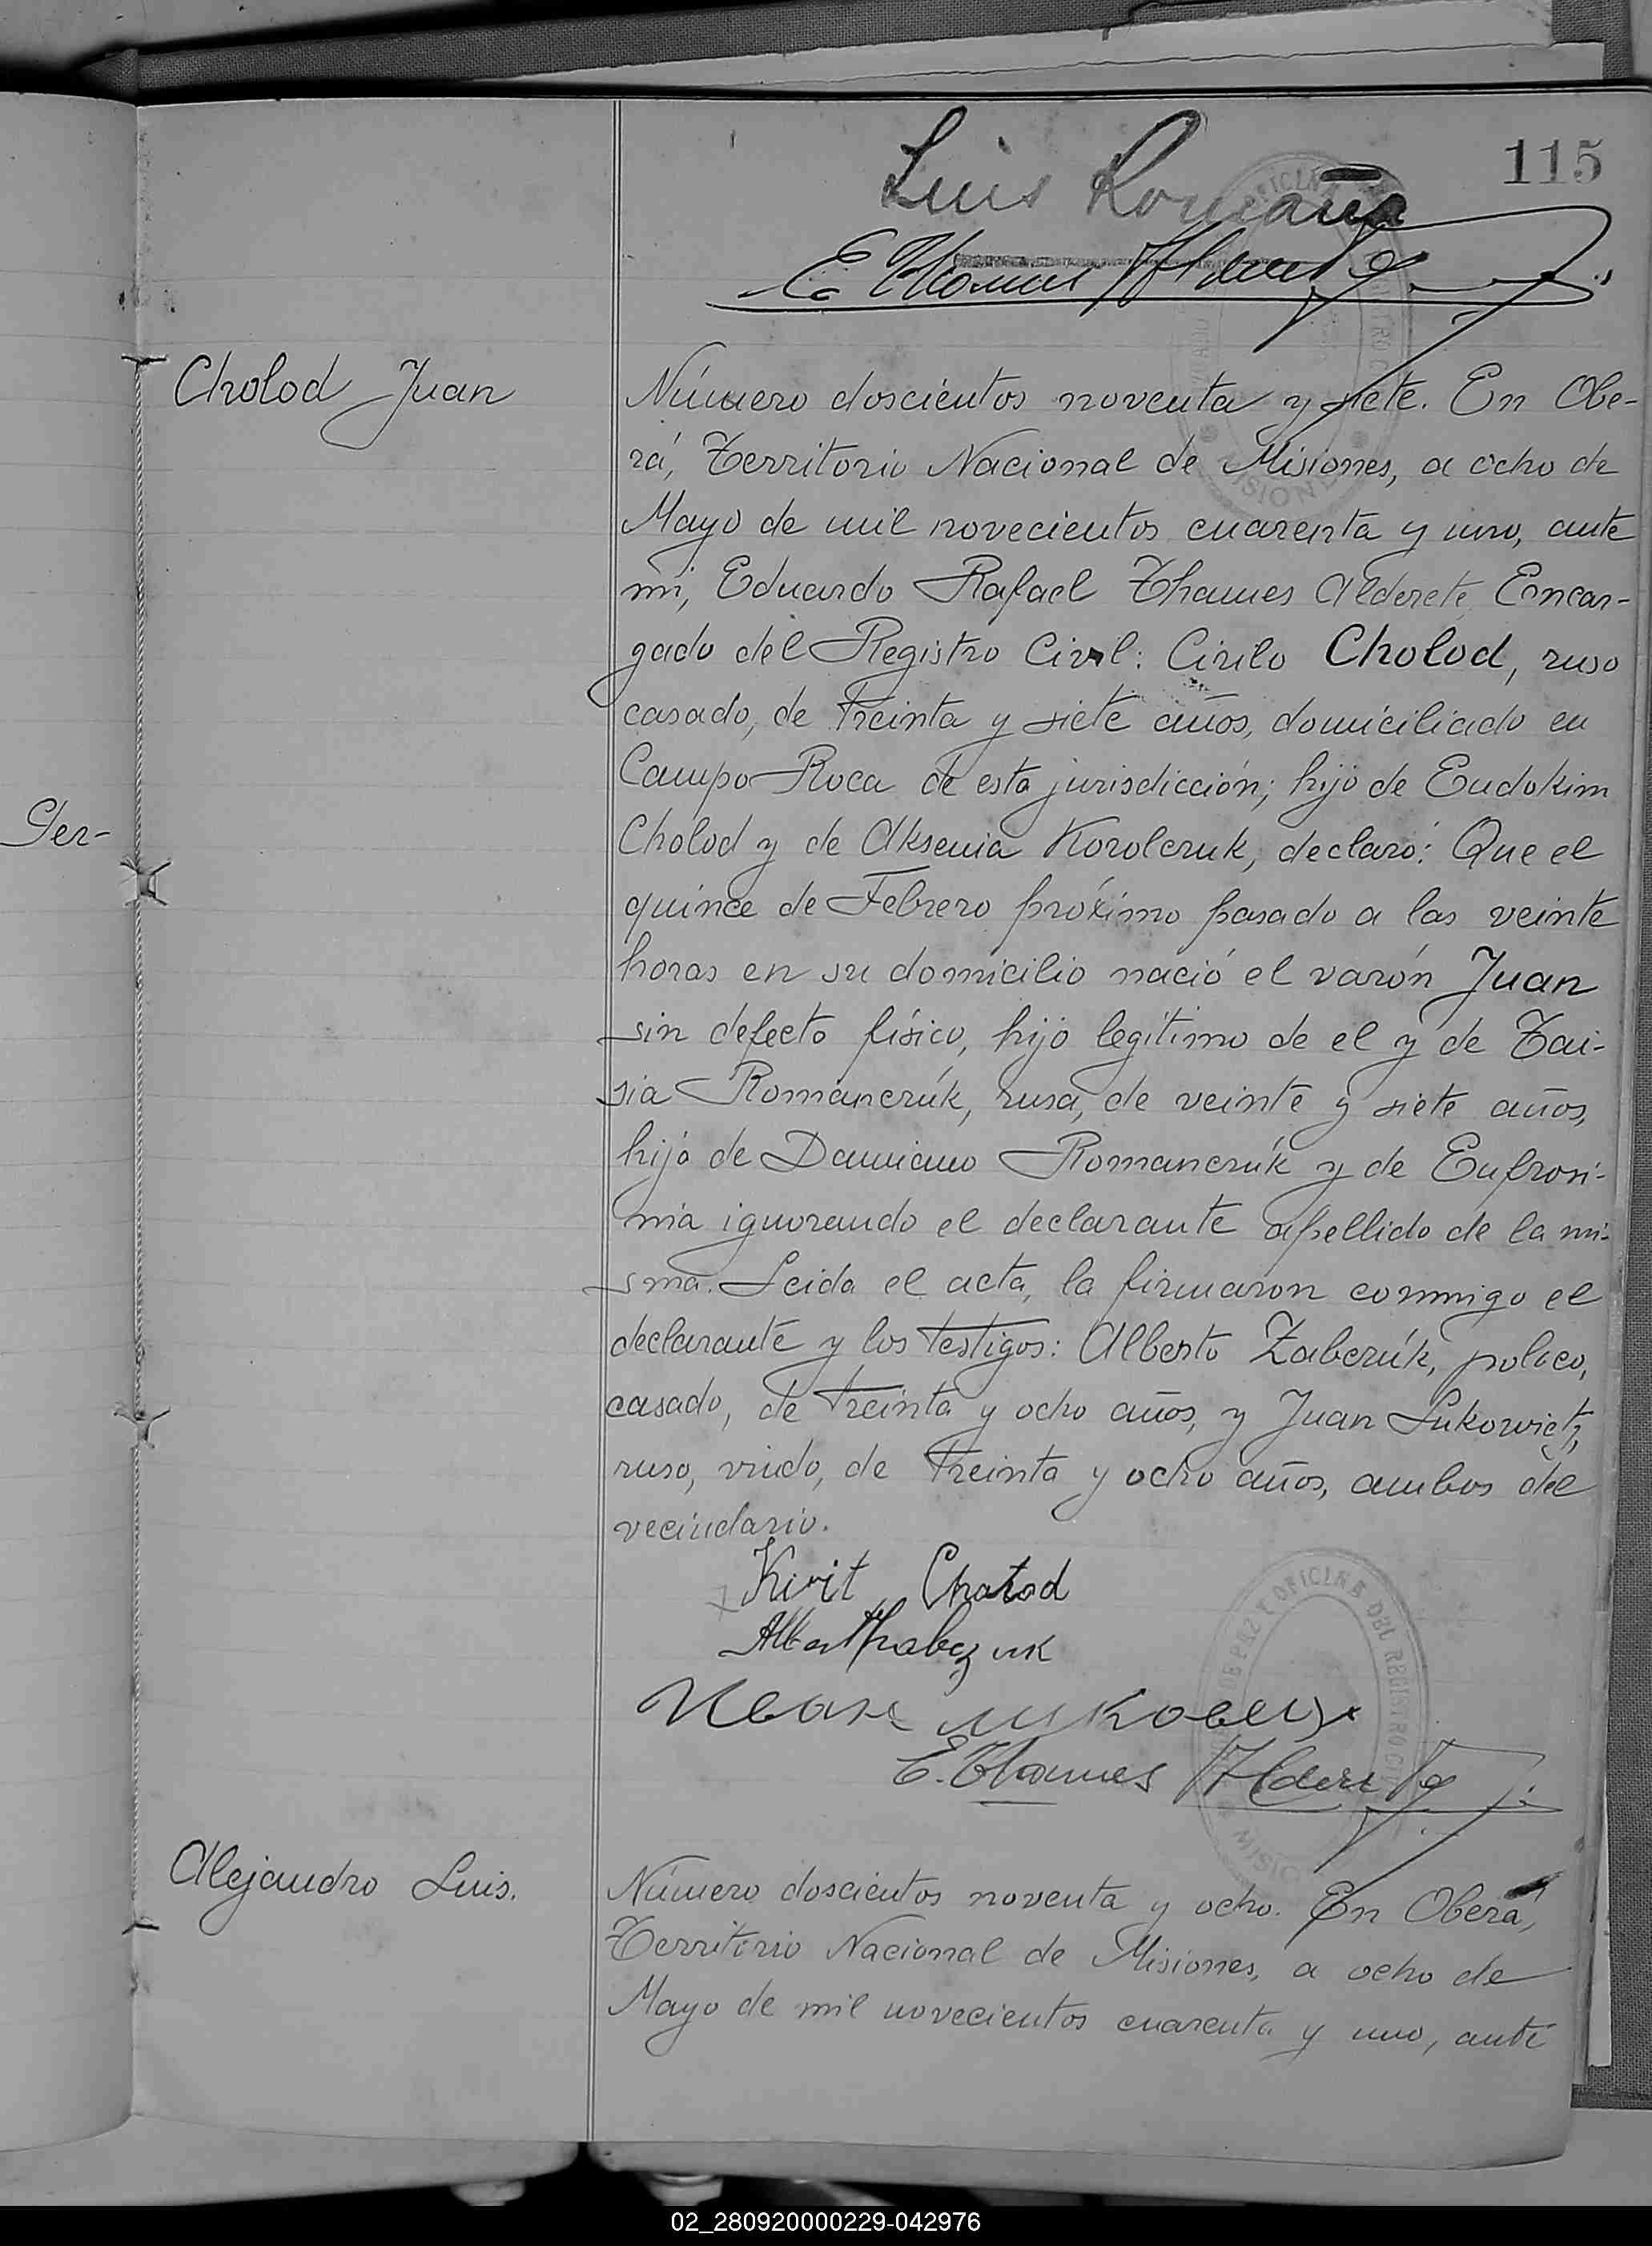 115
Luis Romaña
E. Thames Alderete
Cholod Juan
Número doscientos noventa y siete. En Obe-
rá, Territorio Nacional de Misiones, a ocho de
Mayo de mil novecientos cuarenta y uno, ante
mi, Eduardo Rafael Thames Alderete Encar-
gado del Registro Civil: Cirilo Cholod, ruso
casado, de treinta y siete años, domiciliado en
Campo Roca de esta jurisdicción; hijo de Eudokim
Cholod y de Aksenia Korolczuk, declaró: Que el
quince de Febrero próximo pasado a las veinte
horas en su domicilio nació el varón Juan
sin defecto físico, hijo legítimo de el y de Tai-
sia Romanczuk, rusa, de veinte y siete años,
hija de Damiano Romanczuk y de Eufrosi-
nia ignorando el declarante apellido de la mi-
sma. Leida el acta, la firmaron conmigo el
declarante y los testigos: Alberto Zabczuk, polaco,
casado, de treinta y ocho años, y Juan Lukowietz,
ruso, viudo, de treinta y ocho años, ambos del
vecindario.
Kirit Chatod
E. Thames Alderete
Ger-
Alejandro Luis.
Número doscientos noventa y ocho. En Oberá,
Territorio Nacional de Misiones, a ocho de
Mayo de mil novecientos cuarenta y uno, ante
02_280920000229-042976